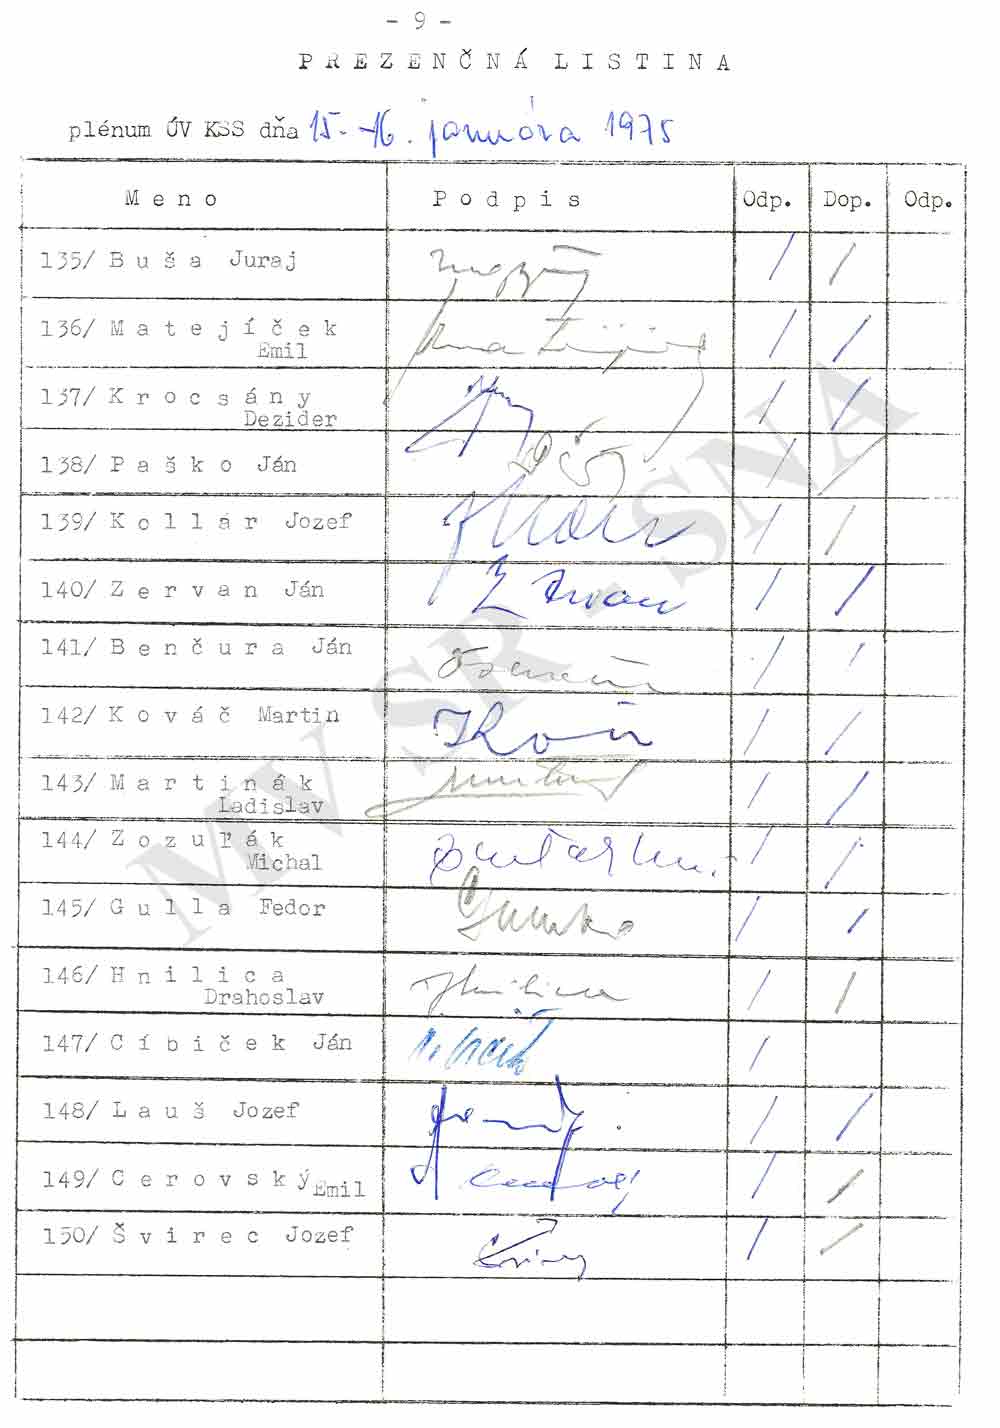 - 9 -
PREZENČNÁ LISTINA
plénum ÚV KSS dňa 15.-16. januára 1975
Meno Podpis Odp. Dop. Odp.
135/ Buša Juraj / /
136/ Matejíček / /
Emil
137/ Krocsány / /
Dezider
138/ Paško Ján / /
139/ Kollár Jozef / /
140/ Zervan Ján Zervan / /
141/ Benčura Ján / /
142/ Kováč Martin / /
143/ Martinák / /
Ladislav
144/ Zozuľák / /
Michal
145/ Gulla Fedor / /
146/ Hnilica Hnilica / /
Drahoslav
147/ Cíbiček Ján /
148/ Lauš Jozef / /
149/ Cerovský / /
Emil
150/ Švirec Jozef / /
MV SR - SNA